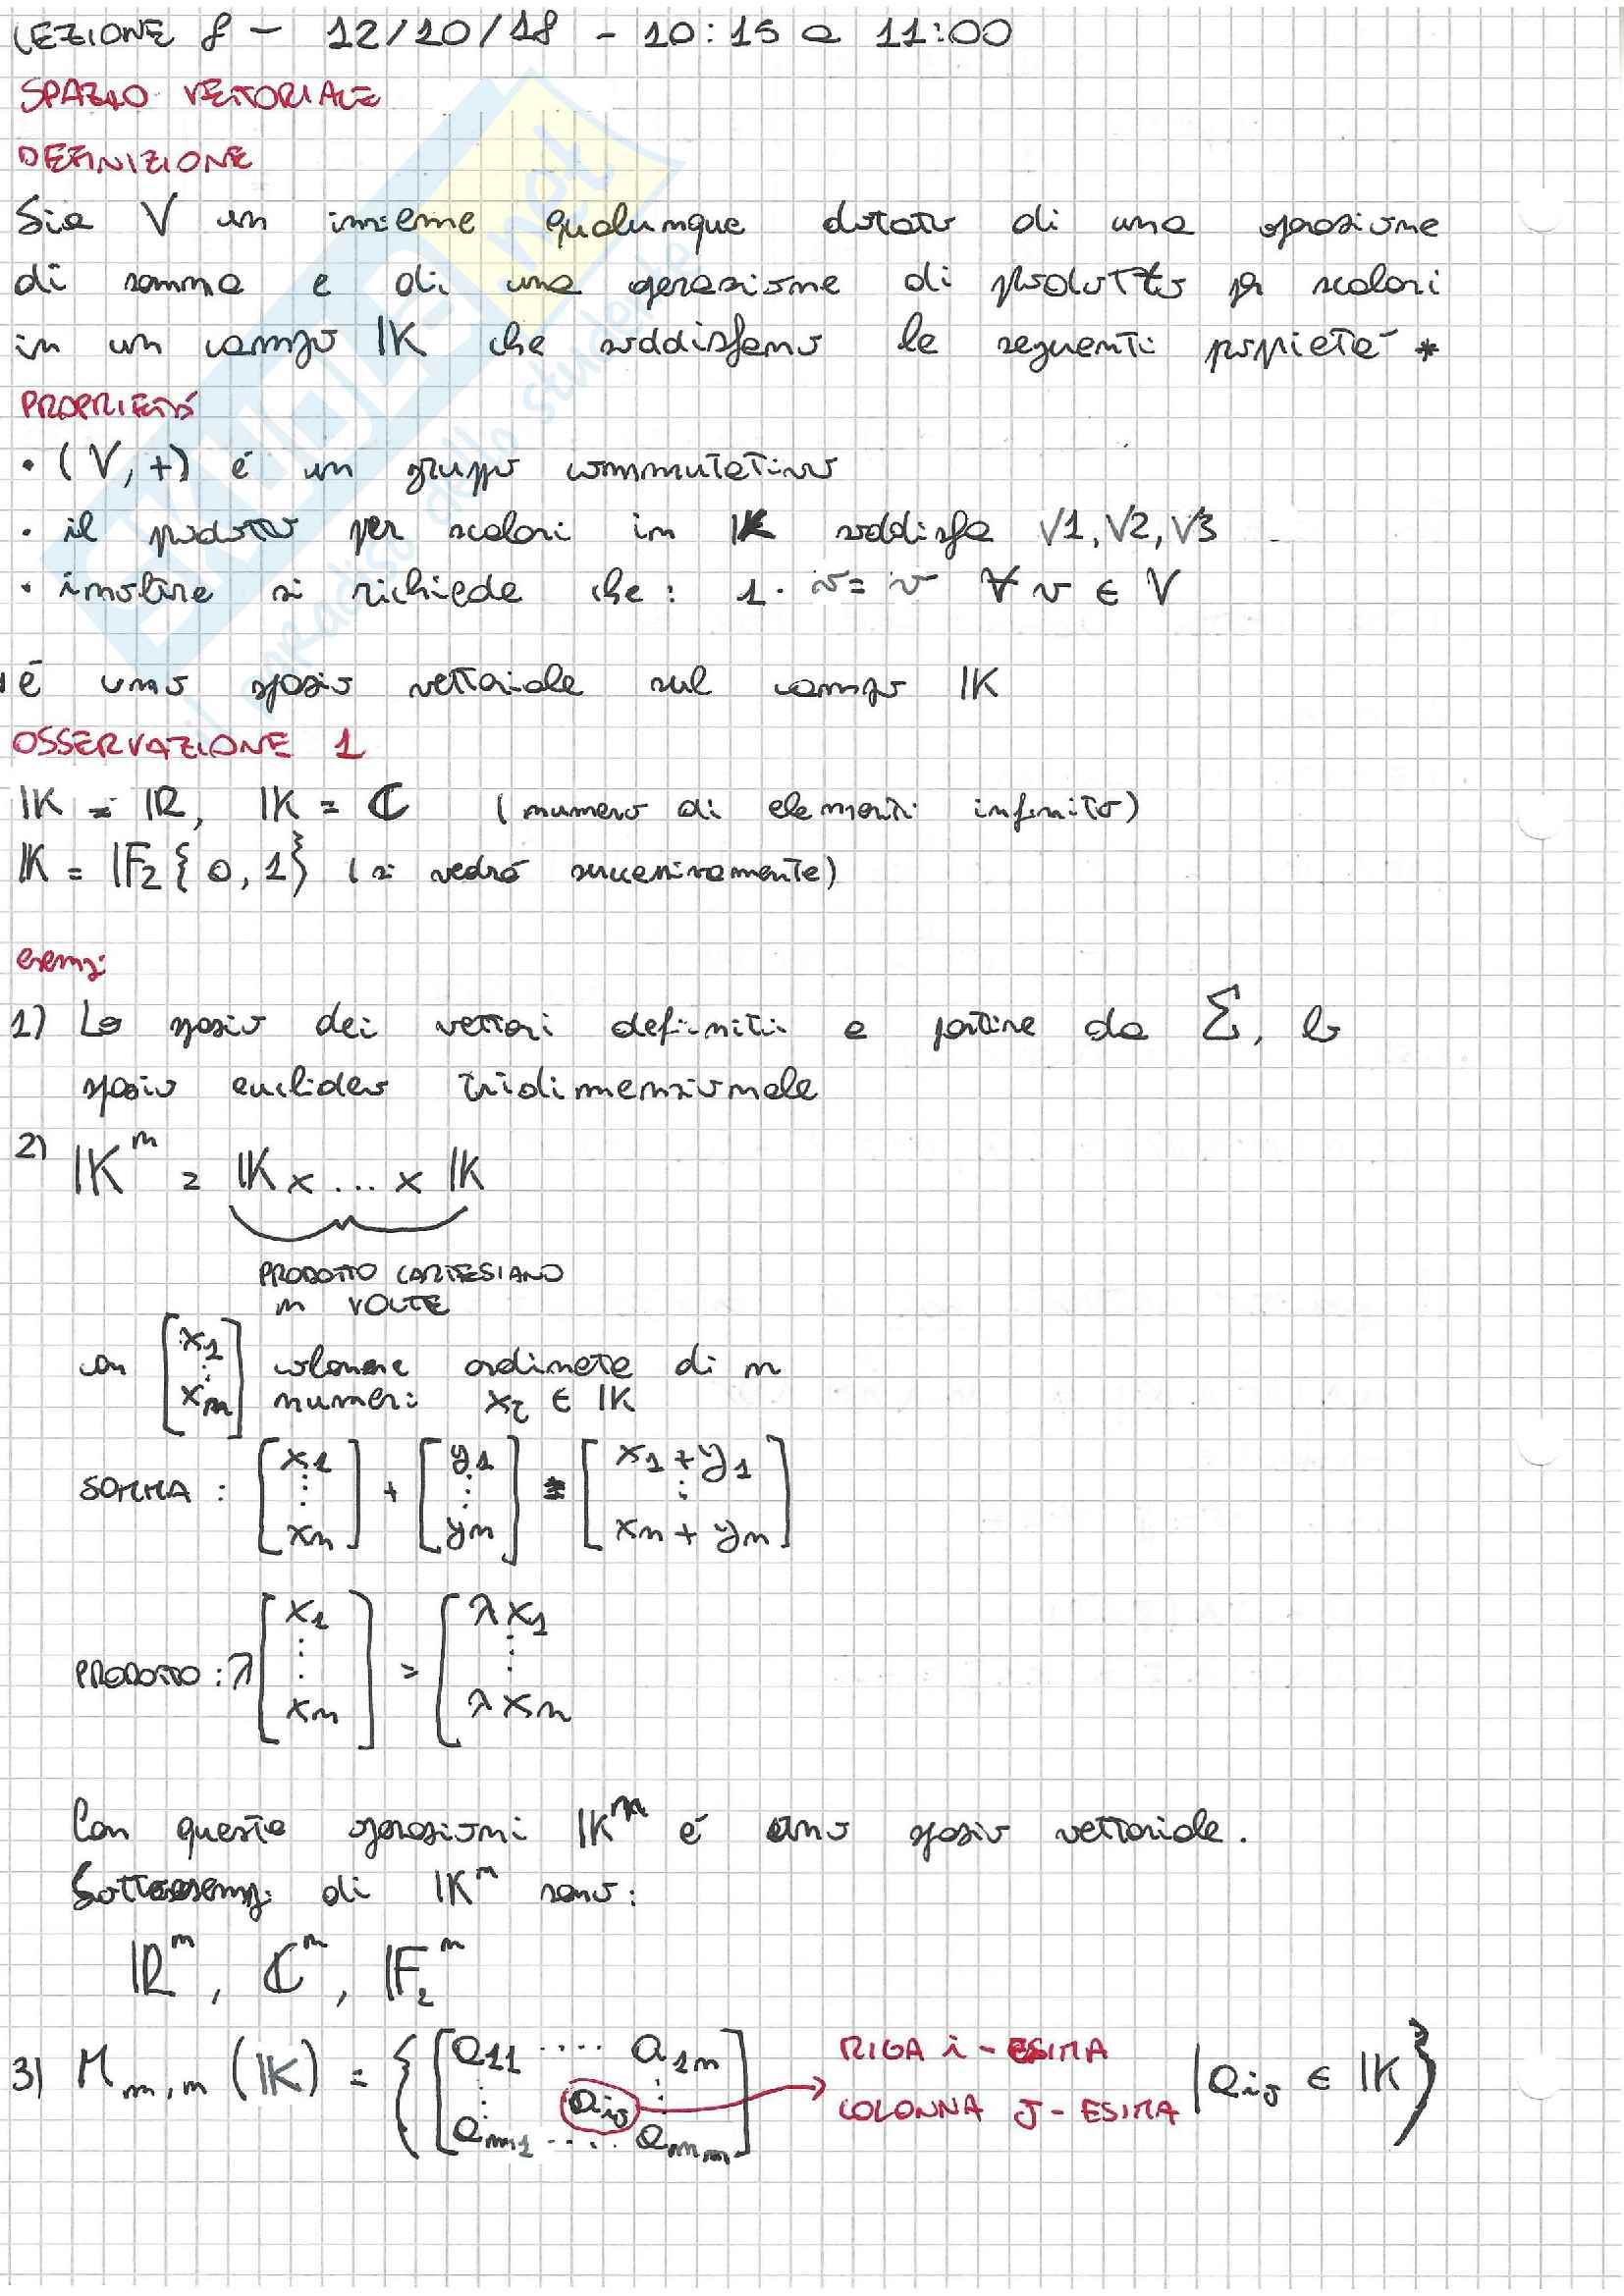 LEZIONE 8 - 12/10/18 - 10:15 a 11:00
SPAZIO VETTORIALE
DEFINIZIONE
Sia V un insieme qualunque dotato di una operazione
di somma e di una operazione di prodotto per scalari
in un campo IK che soddisfano le seguenti proprietà *
PROPRIETÀ
• (V, +) é un gruppo commutativo
• il prodotto per scalari in IK soddisfa V1, V2, V3
• inoltre si richiede che: 1 · v = v ∀ v ∈ V
é uno spazio vettoriale sul campo IK
OSSERVAZIONE 1
IK = IR, IK = ℂ (numero di elementi infinito)
IK = IF₂ {0, 1} (si vedrá successivamente)
esempi
1) Lo spazio dei vettori definiti a partire da Σ, lo
spazio euclideo tridimensionale
2) IKⁿ = IK x ... x IK
PRODOTTO CARTESIANO
n VOLTE
con [x₁ ⋮ xₙ] colonne ordinate di n
numeri xᵢ ∈ IK
SOMMA : [x₁ ⋮ xₙ] + [y₁ ⋮ yₙ] = [x₁ + y₁ ⋮ xₙ + yₙ]
PRODOTTO : λ [x₁ ⋮ xₙ] = [λx₁ ⋮ λxₙ
Con queste operazioni IKⁿ é uno spazio vettoriale.
Sottoesempi di IKⁿ sono:
IRⁿ, ℂⁿ, IF₂ⁿ
3) M m,n (IK) = { [a₁₁ ···· a₁ₙ ⋮ aᵢⱼ ⋮ aₘ₁ ····· aₘₙ] RIGA i-ESIMA COLONNA J-ESIMA | aᵢⱼ ∈ IK }
SKUOLA.net
il paradiso dello studente